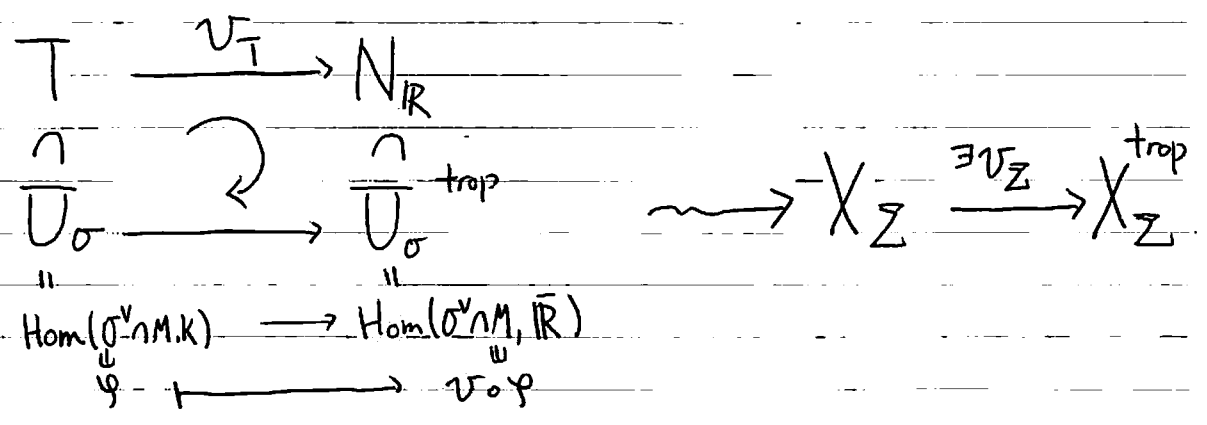 T →^{v_T} N_ℝ
∩ ↻ ∩
U_σ → U_σ^{trop} ⇝ X_Σ →^{∃v_Σ} X_Σ^{trop}
॥ ॥
Hom(σ^∨∩M, K) → Hom(σ^∨∩M, ℝ̄)
φ ↦ v∘φ